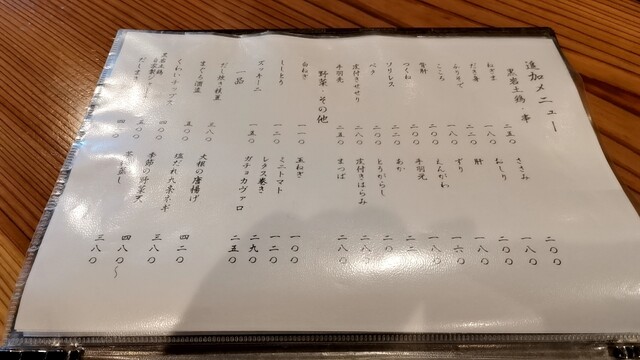 追加メニュー
黒岩土鶏・串
ねぎま 二五〇
ささみ 二〇〇
だき身 一八〇
おしり 一八〇
ふりそで 二〇〇
肝 二〇〇
こころ 一八〇
ずり 一八〇
背肝 二〇〇
えんがわ 一六〇
つくね 二二〇
手羽元 一八〇
ソリレス 二二〇
あか 二二〇
ペタ 二〇〇
とうがらし 二〇〇
皮付きせせり 二二〇
皮付きはらみ 一八〇
手羽先 二五〇
まつば 二八〇
野菜・その他
白ねぎ 一一〇
玉ねぎ 一〇〇
ししとう 一一〇
ミニトマト 一二〇
ズッキーニ 一五〇
レタス巻き 二九〇
ガチョカヴァロ 二五〇
一品
だし焼き枝豆 三八〇
大根の唐揚げ 四二〇
まぐろ酒盗
塩だれ九条ネギ 三八〇
くわいチップス 五〇〇
季節の野菜天 四八〇〜
黒岩土鶏
自家製ジャーキー 五〇〇
茶わん蒸し 三八〇
だしまき 四〇〇